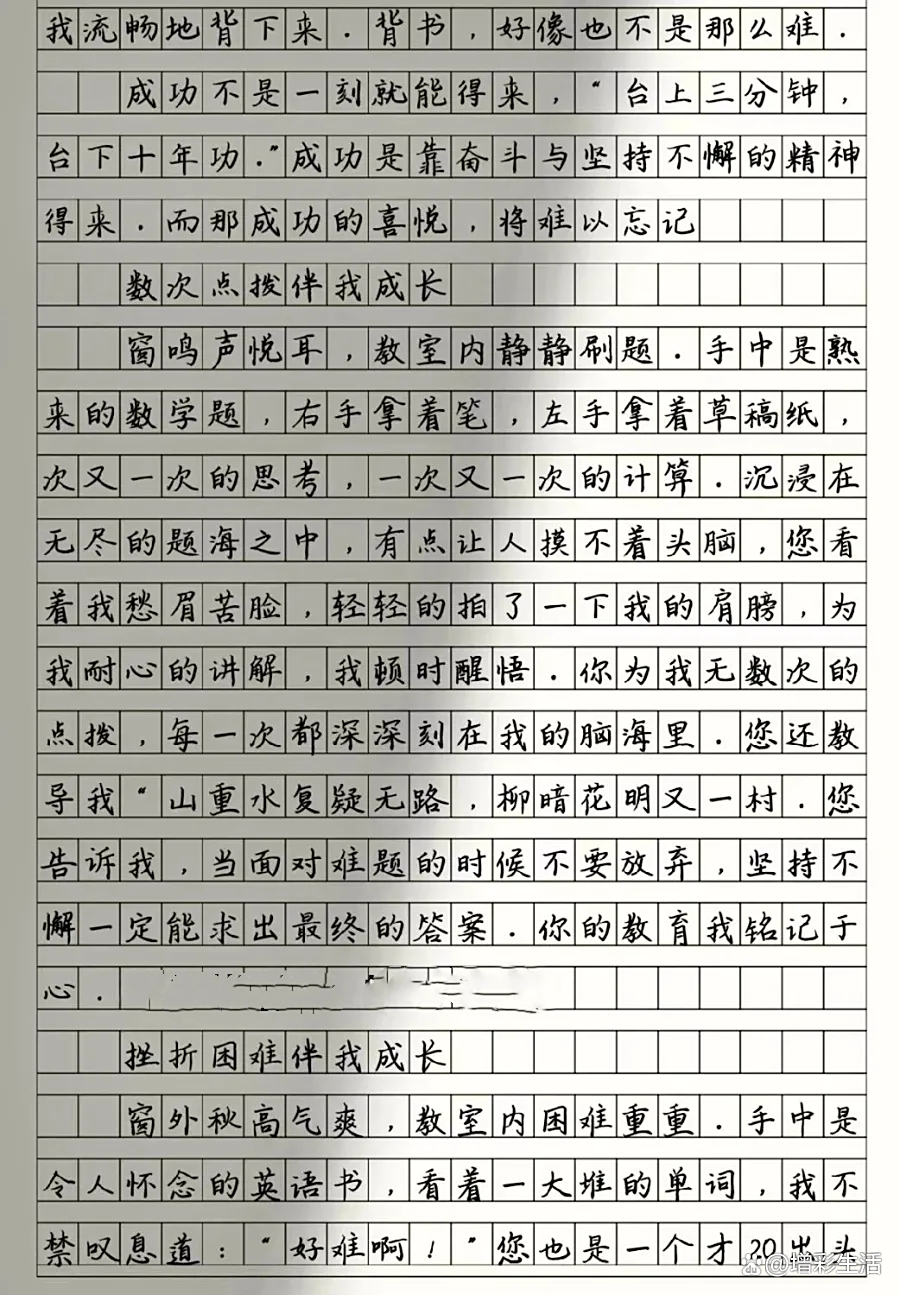 我流畅地背下来.背书,好像也不是那么难.
成功不是一刻就能得来,“台上三分钟,
台下十年功.”成功是靠奋斗与坚持不懈的精神
得来.而那成功的喜悦,将难以忘记
数次点拨伴我成长
窗鸣声悦耳,教室内静静刷题.手中是熟
来的数学题,右手拿着笔,左手拿着草稿纸,
次又一次的思考,一次又一次的计算.沉浸在
无尽的题海之中,有点让人摸不着头脑,您看
着我愁眉苦脸,轻轻的拍了一下我的肩膀,为
我耐心的讲解,我顿时醒悟.你为我无数次的
点拨,每一次都深深刻在我的脑海里.您还教
导我“山重水复疑无路,柳暗花明又一村.您
告诉我,当面对难题的时候不要放弃,坚持不
懈一定能求出最终的答案.你的教育我铭记于
心.
挫折困难伴我成长
窗外秋高气爽,教室内困难重重.手中是
令人怀念的英语书,看着一大堆的单词,我不
禁叹息道:“好难啊!”您也是一个才20出头
@增彩生活